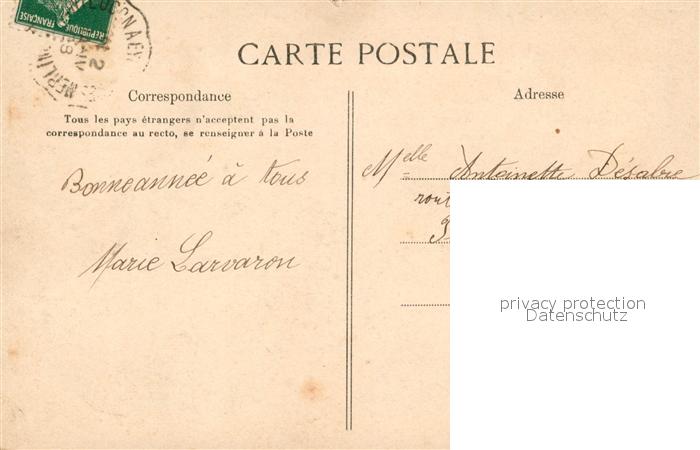 RÉPUBLIQUE FRANÇAISE
CARTE POSTALE
Correspondance
Tous les pays étrangers n'acceptent pas la
correspondance au recto, se renseigner à la Poste
Bonneannéé à tous
Marie Larvaron
Adresse
Melle Antoinette Désabre
rout
privacy protection
Datenschutz